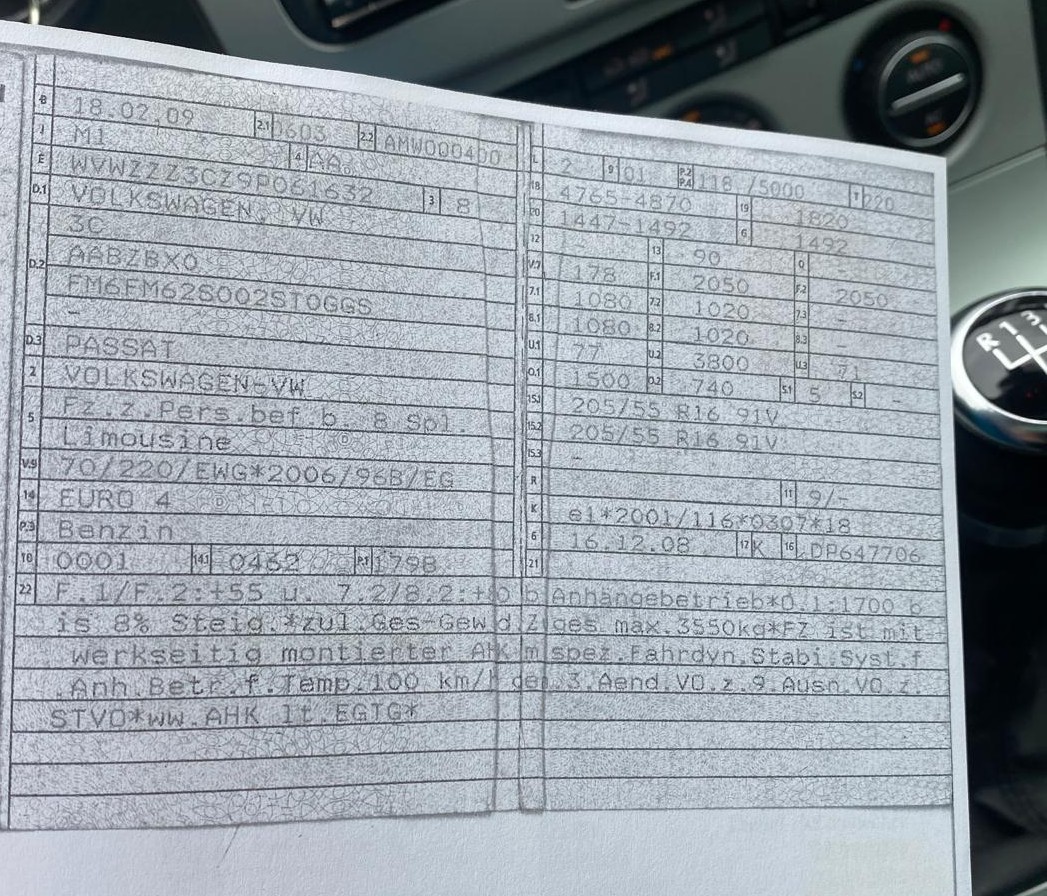 B 18.02.09 2.1 0603 2.2 AMW000400
J M1 4 AA
E WVWZZZ3CZ9P061632 3 8
D.1 VOLKSWAGEN, VW
3C
D.2 AABZBX0
FM6FM62S002ST0GGS
-
D.3 PASSAT
2 VOLKSWAGEN-VW
5 Fz.z.Pers.bef.b. 8 Spl.
Limousine
V.9 70/220/EWG*2006/96B/EG
14 EURO 4
P.3 Benzin
10 0001 14.1 0462 P.1 1798
L 2 9 01 P.2 P.4 118 /5000 T 220
18 4765-4870 19 1820
20 1447-1492 G 1492
12 - 13 90 Q -
V.7 178 F.1 2050 F.2 2050
7.1 1080 7.2 1020 7.3 -
8.1 1080 8.2 1020 8.3 -
U.1 77 U.2 3800 U.3 71
O.1 1500 O.2 740 S.1 5 S.2 -
15.1 205/55 R16 91V
15.2 205/55 R16 91V
15.3 -
R 11 9/-
K e1*2001/116*0307*18
6 16.12.08 17 K 16 LDP647706
21
22 F.1/F.2:+55 u. 7.2/8.2:+ b Anhängebetrieb*O.1:1700 b
is 8% Steig.*zul.Ges-Gew d.Z ges max.3550kg*FZ ist mit
werkseitig montierter AHK m spez.Fahrdyn.Stabi.Syst.f
.Anh.Betr.f.Temp.100 km/h der 3.Aend.VO.z.9.Ausn.VO.z.
STVO*ww.AHK lt.EGTG*
AUTO
R 1 3